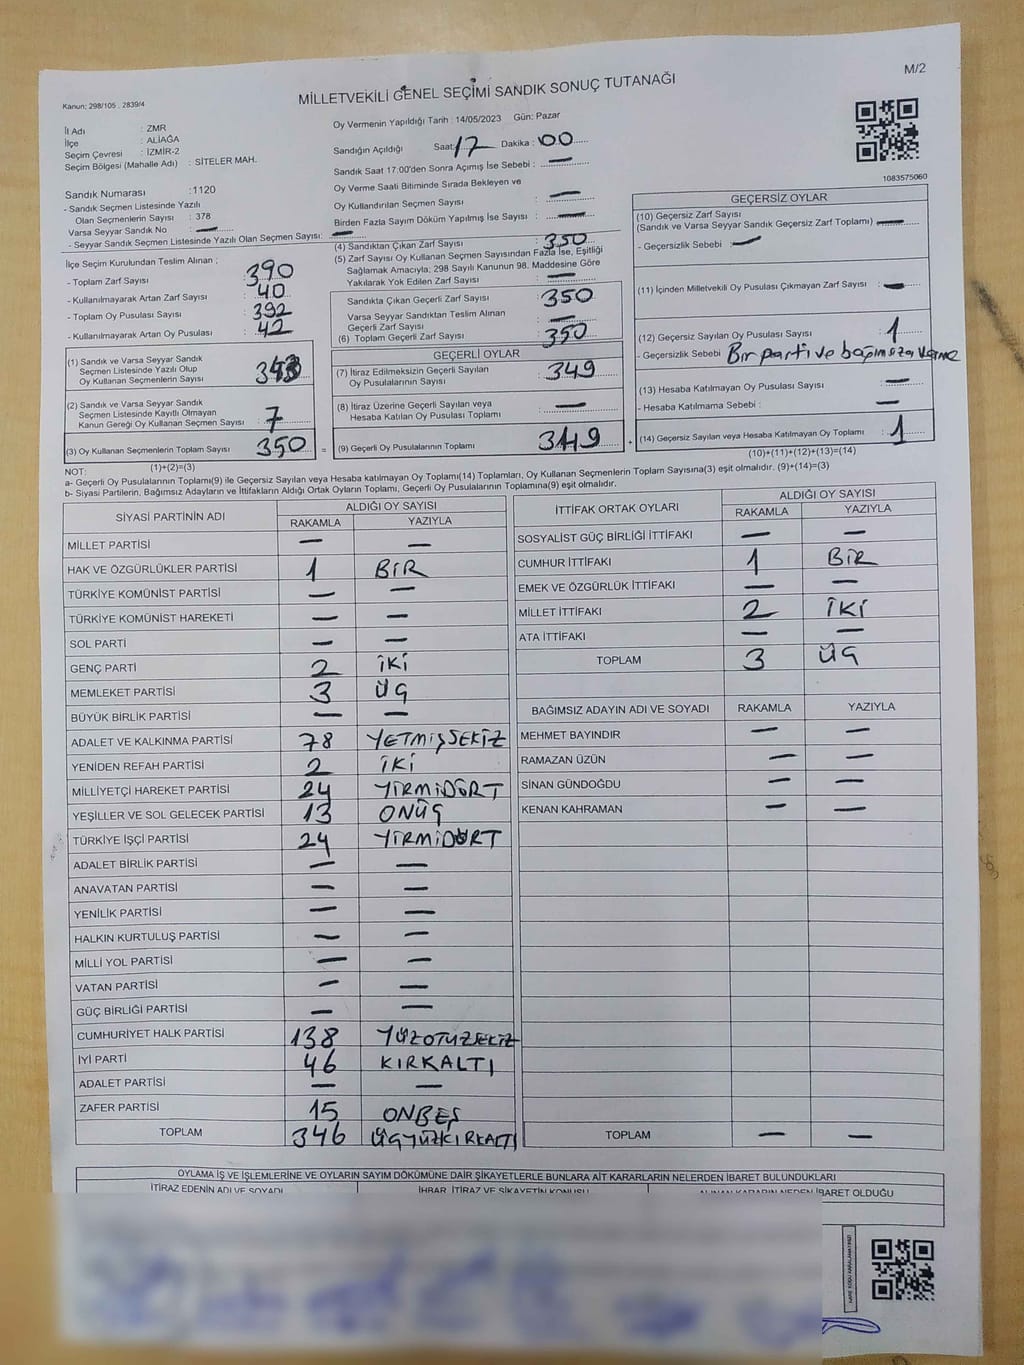 M/2
MİLLETVEKİLİ GENEL SEÇİMİ SANDIK SONUÇ TUTANAĞI
Kanun: 298/105 , 2839/4
İl Adı : ZMR
İlçe : ALİAĞA
Seçim Çevresi : İZMİR-2
Seçim Bölgesi (Mahalle Adı) : SİTELER MAH.
Sandık Numarası : 1120
- Sandık Seçmen Listesinde Yazılı
Olan Seçmenlerin Sayısı : 378
Varsa Seyyar Sandık No : —
- Seyyar Sandık Seçmen Listesinde Yazılı Olan Seçmen Sayısı: —
Oy Vermenin Yapıldığı Tarih : 14/05/2023 Gün: Pazar
Sandığın Açıldığı Saat: 17 Dakika : 00
Sandık Saat 17.00'den Sonra Açımış İse Sebebi : —
Oy Verme Saati Bitiminde Sırada Bekleyen ve
Oy Kullandırılan Seçmen Sayısı : —
Birden Fazla Sayım Döküm Yapılmış İse Sayısı : —
1083575060
İlçe Seçim Kurulundan Teslim Alınan ;
- Toplam Zarf Sayısı : 390
- Kullanılmayarak Artan Zarf Sayısı : 40
- Toplam Oy Pusulası Sayısı : 392
- Kullanılmayarak Artan Oy Pusulası : 42
(1) Sandık ve Varsa Seyyar Sandık
Seçmen Listesinde Yazılı Olup
Oy Kullanan Seçmenlerin Sayısı : 343
(2) Sandık ve Varsa Seyyar Sandık
Seçmen Listesinde Kayıtlı Olmayan
Kanun Gereği Oy Kullanan Seçmen Sayısı : 7
(3) Oy Kullanan Seçmenlerin Toplam Sayısı : 350
(1)+(2)=(3)
(4) Sandıktan Çıkan Zarf Sayısı : 350
(5) Zarf Sayısı Oy Kullanan Seçmen Sayısından Fazla İse, Eşitliği
Sağlamak Amacıyla; 298 Sayılı Kanunun 98. Maddesine Göre
Yakılarak Yok Edilen Zarf Sayısı : —
Sandıkta Çıkan Geçerli Zarf Sayısı : 350
Varsa Seyyar Sandıktan Teslim Alınan
Geçerli Zarf Sayısı : —
(6) Toplam Geçerli Zarf Sayısı : 350
GEÇERLİ OYLAR
(7) İtiraz Edilmeksizin Geçerli Sayılan
Oy Pusulalarının Sayısı : 349
(8) İtiraz Üzerine Geçerli Sayılan veya
Hesaba Katılan Oy Pusulası Toplamı : —
= (9) Geçerli Oy Pusulalarının Toplamı : 349
GEÇERSİZ OYLAR
(10) Geçersiz Zarf Sayısı
(Sandık ve Varsa Seyyar Sandık Geçersiz Zarf Toplamı) : —
- Geçersizlik Sebebi : —
(11) İçinden Milletvekili Oy Pusulası Çıkmayan Zarf Sayısı : —
(12) Geçersiz Sayılan Oy Pusulası Sayısı : 1
- Geçersizlik Sebebi : Bir parti ve bağımsıza verme
(13) Hesaba Katılmayan Oy Pusulası Sayısı : —
- Hesaba Katılmama Sebebi : —
+ (14) Geçersiz Sayılan veya Hesaba Katılmayan Oy Toplamı : 1
(10)+(11)+(12)+(13)=(14)
NOT:
a- Geçerli Oy Pusulalarının Toplamı(9) ile Geçersiz Sayılan veya Hesaba Katılmayan Oy Toplamı(14) Toplamları, Oy Kullanan Seçmenlerin Toplam Sayısına(3) eşit olmalıdır. (9)+(14)=(3)
b- Siyasi Partilerin, Bağımsız Adayların ve İttifakların Aldığı Ortak Oyların Toplamı, Geçerli Oy Pusulalarının Toplamına(9) eşit olmalıdır.
SİYASİ PARTİNİN ADI ALDIĞI OY SAYISI
RAKAMLA YAZIYLA
MİLLET PARTİSİ — —
HAK VE ÖZGÜRLÜKLER PARTİSİ 1 BİR
TÜRKİYE KOMÜNİST PARTİSİ — —
TÜRKİYE KOMÜNİST HAREKETİ — —
SOL PARTİ — —
GENÇ PARTİ 2 İKİ
MEMLEKET PARTİSİ 3 ÜÇ
BÜYÜK BİRLİK PARTİSİ — —
ADALET VE KALKINMA PARTİSİ 78 YETMİŞSEKİZ
YENİDEN REFAH PARTİSİ 2 İKİ
MİLLİYETÇİ HAREKET PARTİSİ 24 YİRMİDÖRT
YEŞİLLER VE SOL GELECEK PARTİSİ 13 ONÜÇ
TÜRKİYE İŞÇİ PARTİSİ 24 YİRMİDÖRT
ADALET BİRLİK PARTİSİ — —
ANAVATAN PARTİSİ — —
YENİLİK PARTİSİ — —
HALKIN KURTULUŞ PARTİSİ — —
MİLLİ YOL PARTİSİ — —
VATAN PARTİSİ — —
GÜÇ BİRLİĞİ PARTİSİ — —
CUMHURİYET HALK PARTİSİ 138 YÜZOTUZSEKİZ
İYİ PARTİ 46 KIRKALTI
ADALET PARTİSİ — —
ZAFER PARTİSİ 15 ONBEŞ
TOPLAM 346 ÜÇYÜZKIRKALTI
İTTİFAK ORTAK OYLARI ALDIĞI OY SAYISI
RAKAMLA YAZIYLA
SOSYALİST GÜÇ BİRLİĞİ İTTİFAKI — —
CUMHUR İTTİFAKI 1 BİR
EMEK VE ÖZGÜRLÜK İTTİFAKI — —
MİLLET İTTİFAKI 2 İKİ
ATA İTTİFAKI — —
TOPLAM 3 ÜÇ
BAĞIMSIZ ADAYIN ADI VE SOYADI RAKAMLA YAZIYLA
MEHMET BAYINDIR — —
RAMAZAN ÜZÜN — —
SİNAN GÜNDOĞDU — —
KENAN KAHRAMAN — —
TOPLAM — —
OYLAMA İŞ VE İŞLEMLERİNE VE OYLARIN SAYIM DÖKÜMÜNE DAİR ŞİKAYETLERLE BUNLARA AİT KARARLARIN NELERDEN İBARET BULUNDUKLARI
İTİRAZ EDENİN ADI VE SOYADI İHBAR, İTİRAZ VE ŞİKAYETİN KONUSU ALINAN KARARIN NEDEN İBARET OLDUĞU